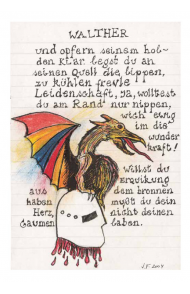 WALTHER
und opfern seinem hol-
den klar legst du an
seinen Quell die Lippen,
zu kühlen frevle
Leidenschaft, ja, wolltest
du am Rand nur nippen,
wich' ewig
im die
wunder
kraft!
Willst du
Erquikung
aus dem bronnen
haben mußt du dein
Herz, nicht deinen
Gaumen laben.
J.F. 2004